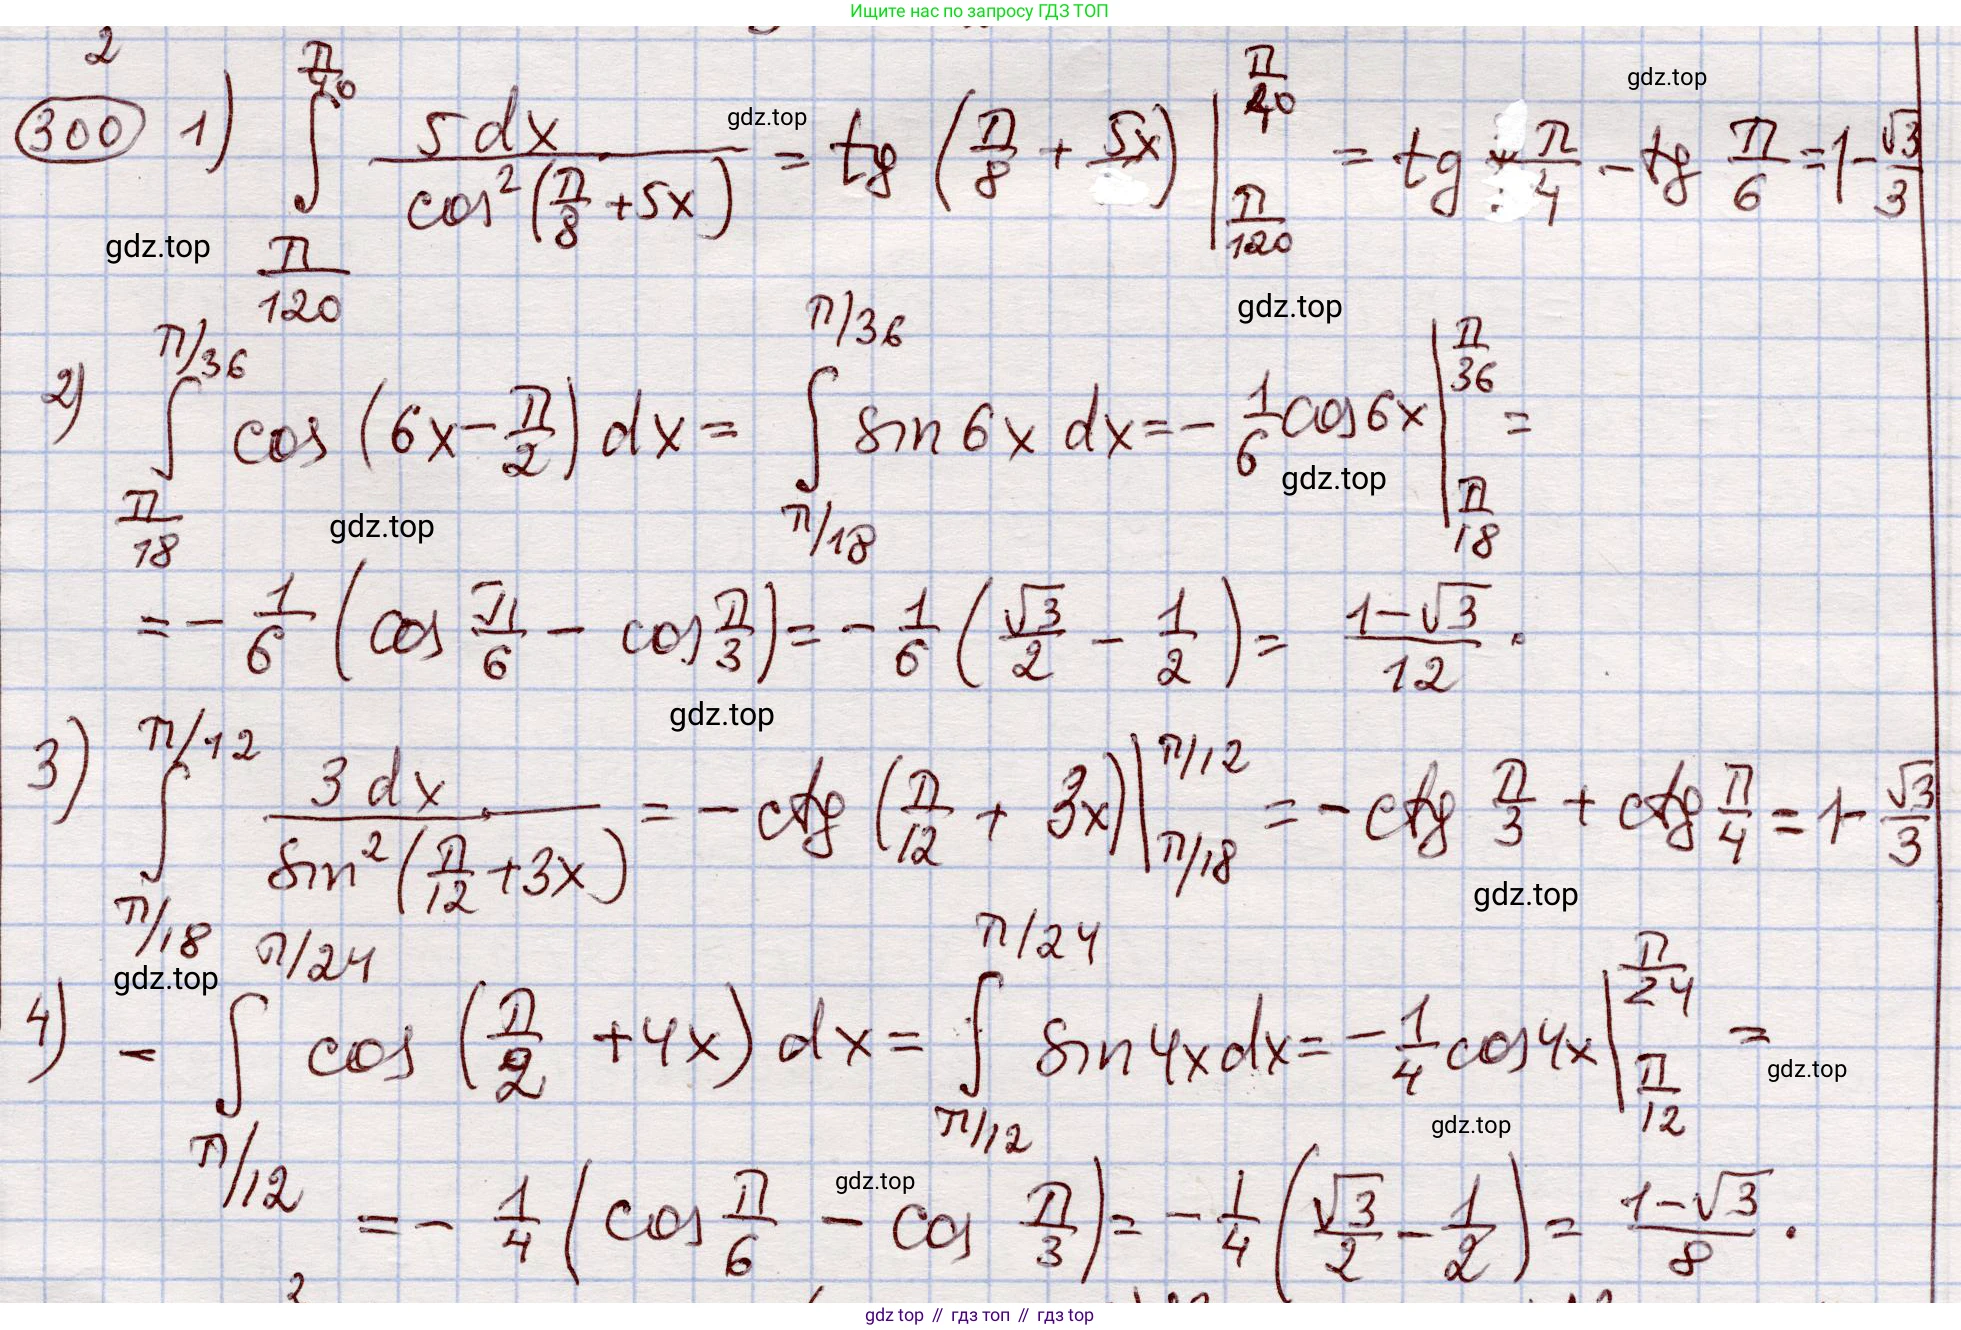 Ищите нас по запросу ГДЗ ТОП
2
300 1) ∫_{π/120}^{π/40} 5dx / cos²(π/8 + 5x) = tg (π/8 + 5x) |_{π/120}^{π/40} = tg π/4 - tg π/6 = 1 - √3/3
gdz.top
gdz.top
gdz.top
gdz.top
2) ∫_{π/18}^{π/36} cos (6x - π/2) dx = ∫_{π/18}^{π/36} sin 6x dx = - 1/6 cos 6x |_{π/18}^{π/36} =
gdz.top
gdz.top
= - 1/6 (cos π/6 - cos π/3) = - 1/6 (√3/2 - 1/2) = (1-√3)/12 .
gdz.top
3) ∫_{π/18}^{π/12} 3dx / sin²(π/12 + 3x) = - ctg (π/12 + 3x) |_{π/18}^{π/12} = - ctg π/3 + ctg π/4 = 1 - √3/3
gdz.top
gdz.top
4) - ∫_{π/12}^{π/24} cos (π/2 + 4x) dx = ∫_{π/12}^{π/24} sin 4x dx = - 1/4 cos 4x |_{π/12}^{π/24} =
gdz.top
gdz.top
gdz.top
= - 1/4 (cos π/6 - cos π/3) = - 1/4 (√3/2 - 1/2) = (1-√3)/8 .
gdz.top // гдз топ // гдз top